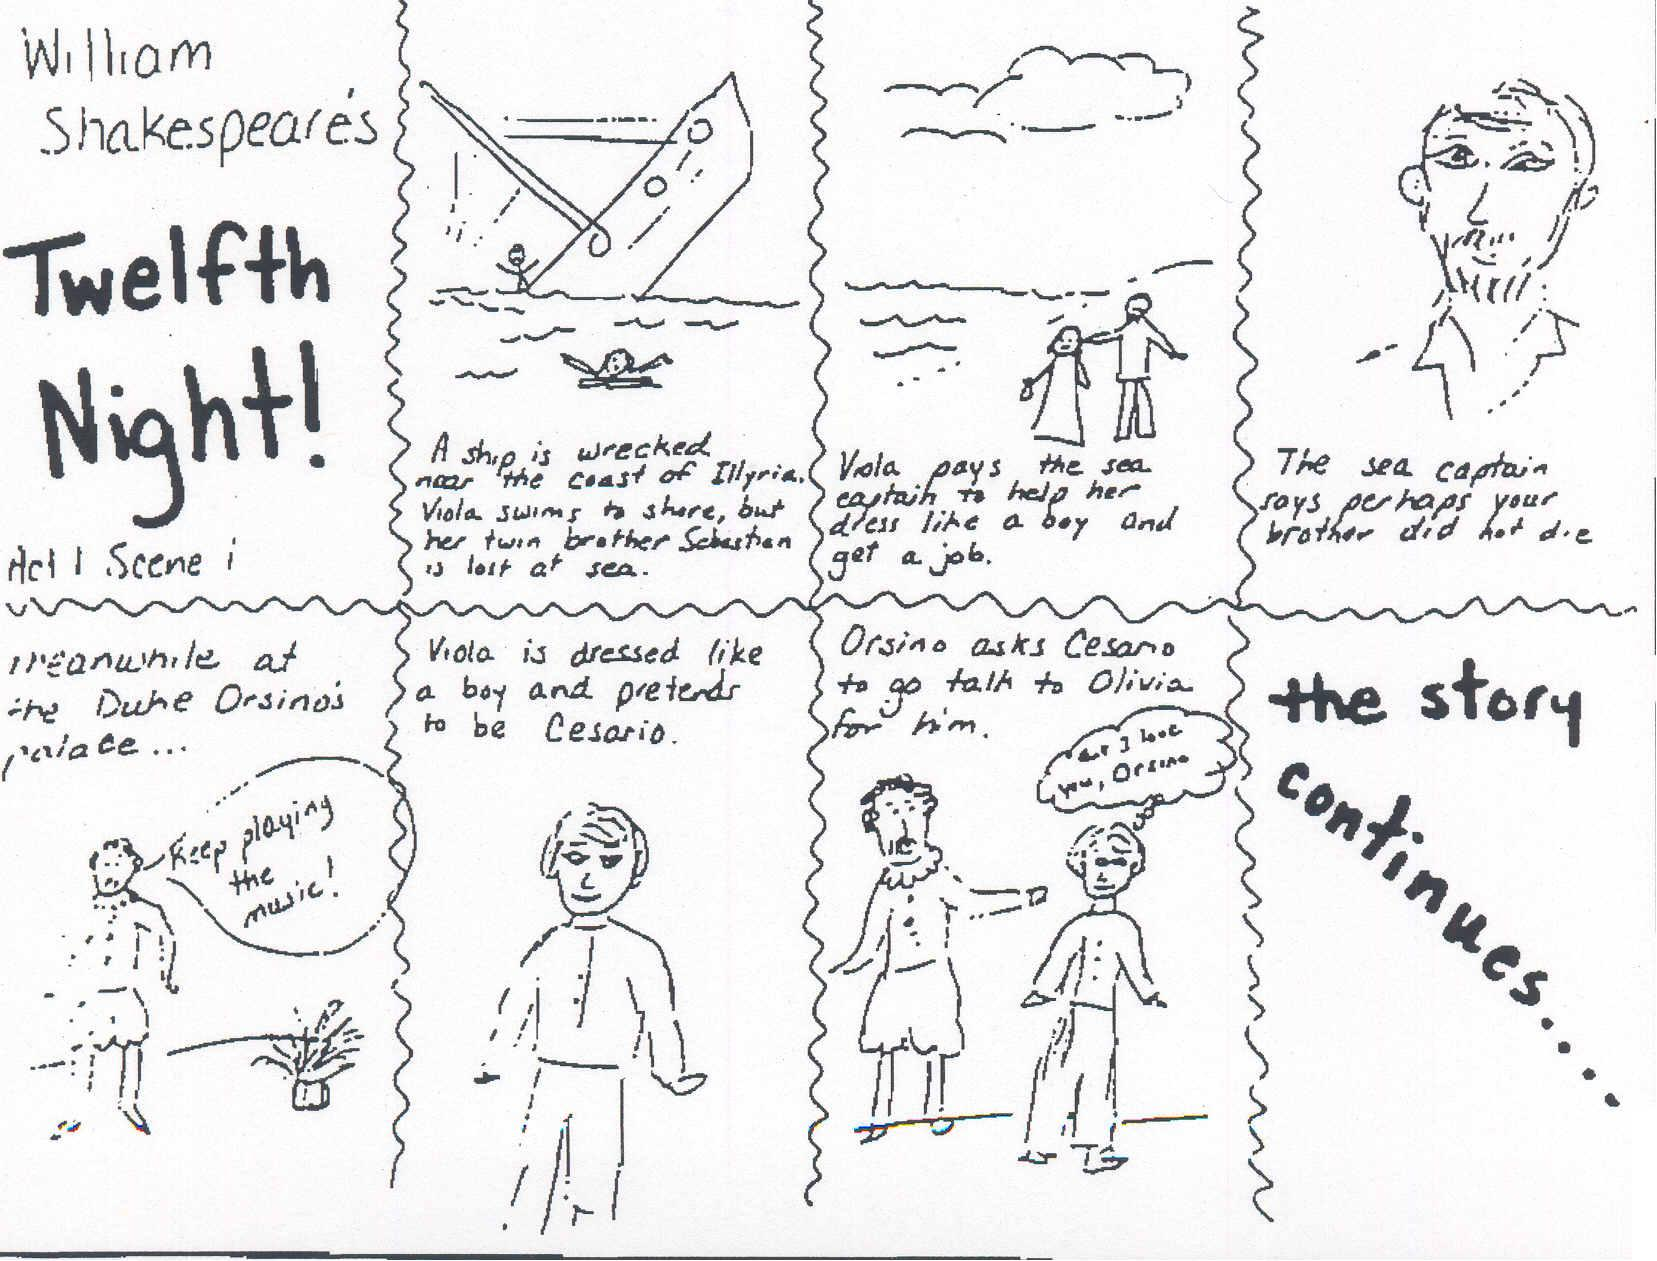 William
Shakespeare's
Twelfth
Night!
Act I Scene i
A ship is wrecked
near the coast of Illyria.
Viola swims to shore, but
her twin brother Sebastian
is lost at sea.
Viola pays the sea
captain to help her
dress like a boy and
get a job.
The sea captain
says perhaps your
brother did not die
Meanwhile at
the Duke Orsino's
palace...
Keep playing
the
music!
Viola is dressed like
a boy and pretends
to be Cesario.
Orsino asks Cesario
to go talk to Olivia
for him.
but I love
you, Orsino
the story
continues....